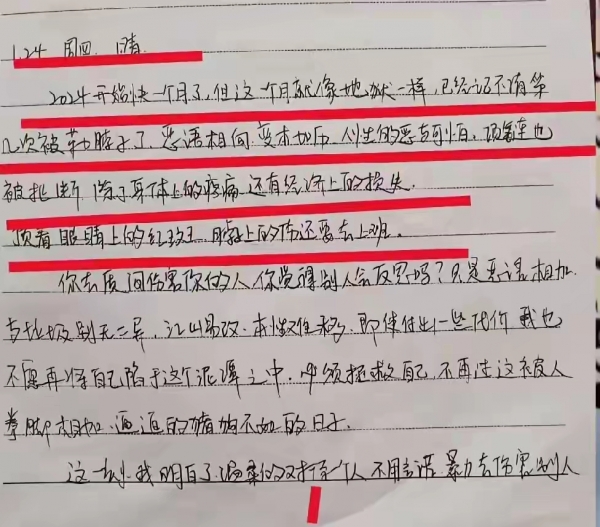 1.24 周四 晴
2024开始快一个月了,但这一个月就像地狱一样,已经记不清第
几次被勒脖子了,恶语相向,变本加厉,人性的恶真可怕,项链也
被扯断,除了身体上的疼痛,还有经济上的损失.
顶着眼睛上的红斑,脖子上的伤还要去上班。
你去质问伤害你的人,你觉得别人会反思吗?只是恶语相加
与垃圾别无二异,江山易改,本性难移,即使付出一些代价,我也
不愿再将自己陷于这个泥潭之中,必须拯救自己,不再过这被人
拳脚相加,逼迫的猪狗不如的日子.
这一刻,我明白了,温柔的对待每个人,不用言语暴力去伤害别人